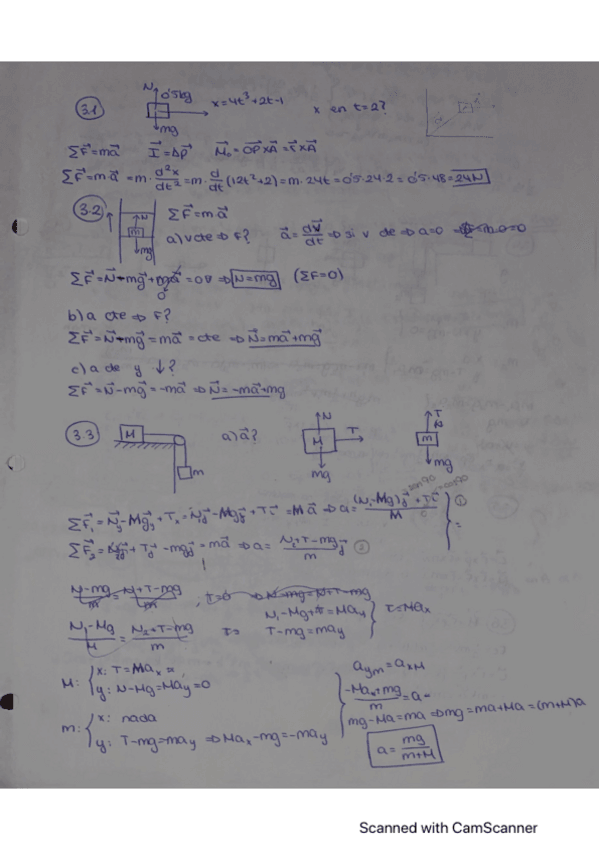 3.1
N
0'5kg
x=4t³+2t-1
x en t=2?
mg
ΣF⃗=ma⃗ I⃗=Δp⃗ M⃗₀=OP⃗×A⃗=r⃗×A⃗
ΣF⃗=ma⃗=m·d²x/dt²=m·d/dt(12t²+2)=m·24t=0'5·24·2=0'5·48=24N
3.2
N
m
mg
ΣF⃗=ma⃗
a) v cte ⇒ F? a⃗=dv⃗/dt ⇒ si v cte ⇒ a=0
ΣF⃗=N⃗-mg⃗+ma⃗=0 ⇒ N=mg (ΣF=0)
0
b) a cte ⇒ F?
ΣF⃗=N⃗-mg⃗=ma⃗=cte ⇒ N⃗=ma⃗+mg⃗
c) a cte y ↓?
ΣF⃗=N⃗-mg⃗=-ma⃗ ⇒ N⃗=-ma⃗+mg
3.3
M
m
a) a⃗?
N
M
T
mg
T
N
m
mg
ΣF⃗₁=N⃗y-Mg⃗y+Tₓ=Nj⃗-Mgj⃗+Ti⃗=Ma⃗ ⇒ a=(N₁-Mg)j⃗+Ti⃗/M ①
ΣF⃗₂= +Tj⃗-mgj⃗=ma⃗ ⇒ a=N₂+T-mg/m j⃗ ②
N-mg/m=N+T-mg/m, T=0 ⇒ N-mg=N+T-mg
N₁-Mg/M=N₂+T-mg/m
N₁-Mg+T=May
T-mg=may
T=Maₓ
M: x: T=Maₓ
y: N-Mg=May=0
m: x: nada
y: T-mg=may ⇒ Maₓ-mg=-may
aym=axM
-Maₓ+mg/m=a
mg-Ma=ma ⇒ mg=ma+Ma=(m+M)a
a=mg/m+M
Scanned with CamScanner